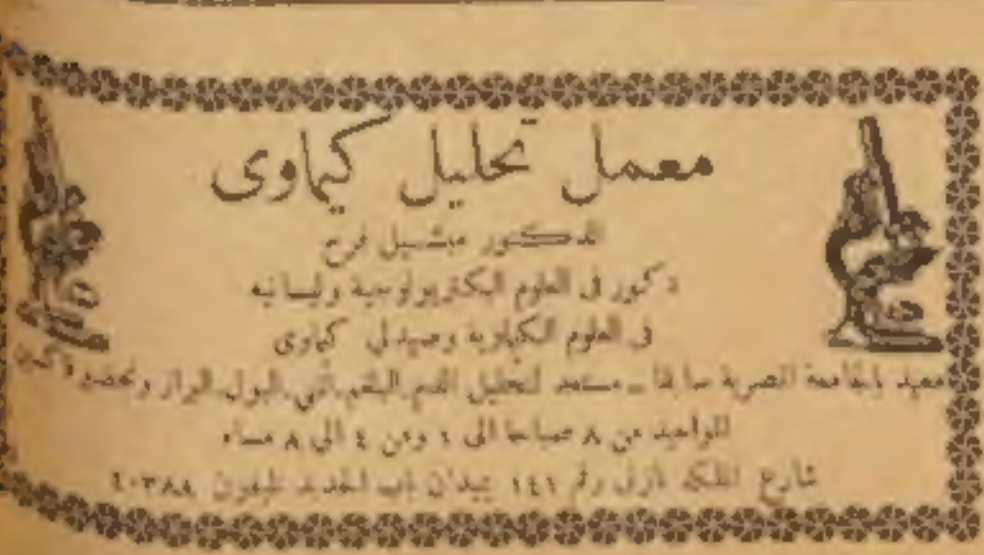 معمل تحليل كيماوى
الدكتور ميشيل فرح
دكتور فى العلوم البكتريولوجية وليسانيه
فى العلوم الكيماوية وصيدلى كيماوى
معيد بالجامعة المصرية سابقا ــ مستعد لتحليل الدم.البلغم.التى.البول.البراز وتحضير
المواعيد من ٨ صباحا الى ١ ومن ٤ الى ٨ مساء
شارع الملكه نازلى رقم ١٤١ بميدان باب الحديد تليفون ٤٠٣٨٨